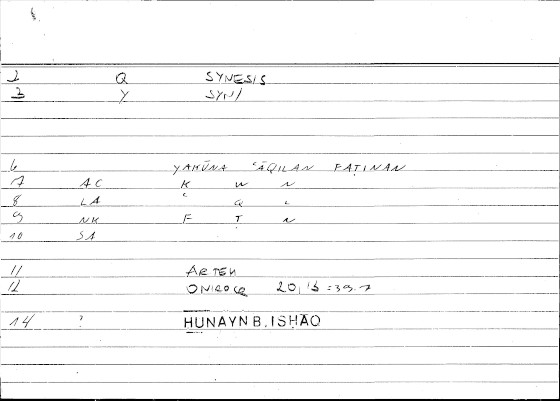 2 Q SYNESIS
3 Y SYN/
6 YAKŪNA ʿĀQILAN FAṬINAN
7 AC K W N
8 LA ʿ Q L
9 NK F Ṭ N
10 SA
11 ARTEM
12 ONIROCR 20,
14 ? HUNAYN B. ISHAQ